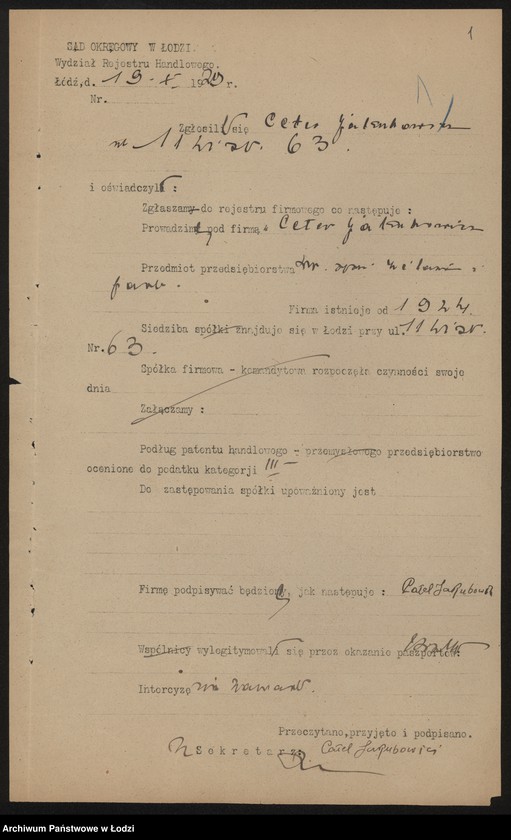 1
SĄD OKRĘGOWY W ŁODZI.
Wydział Rejestru Handlowego.
Łódź, d. 19-X 1929 r.
Nr.
Zgłosił się
11 List. 63.
i oświadczył :
Zgłaszamy do rejestru firmowego co następuje :
Prowadzimy pod firmą
Przedmiot przedsiębiorstwa
farb.
Firma istnieje od 1924.
Siedziba spółki znajduje się w Łodzi przy ul. 11 List.
Nr. 63.
Spółka firmowa - komandytowa rozpoczęła czynności swoje
dnia
Załączamy :
Podług patentu handlowego - przemysłowego przedsiębiorstwo
ocenione do podatku kategorji III-
Do zastępowania spółki upoważniony jest
Firmę podpisywać będzie, jak następuje : Calel Jakubowicz
Wspólnicy wylegitymowali się przez okazanie paszportów.
Intercyzę nie zawarł.
Przeczytano, przyjęto i podpisano.
Sekretarz Calel Jakubowicz
Archiwum Państwowe w Łodzi